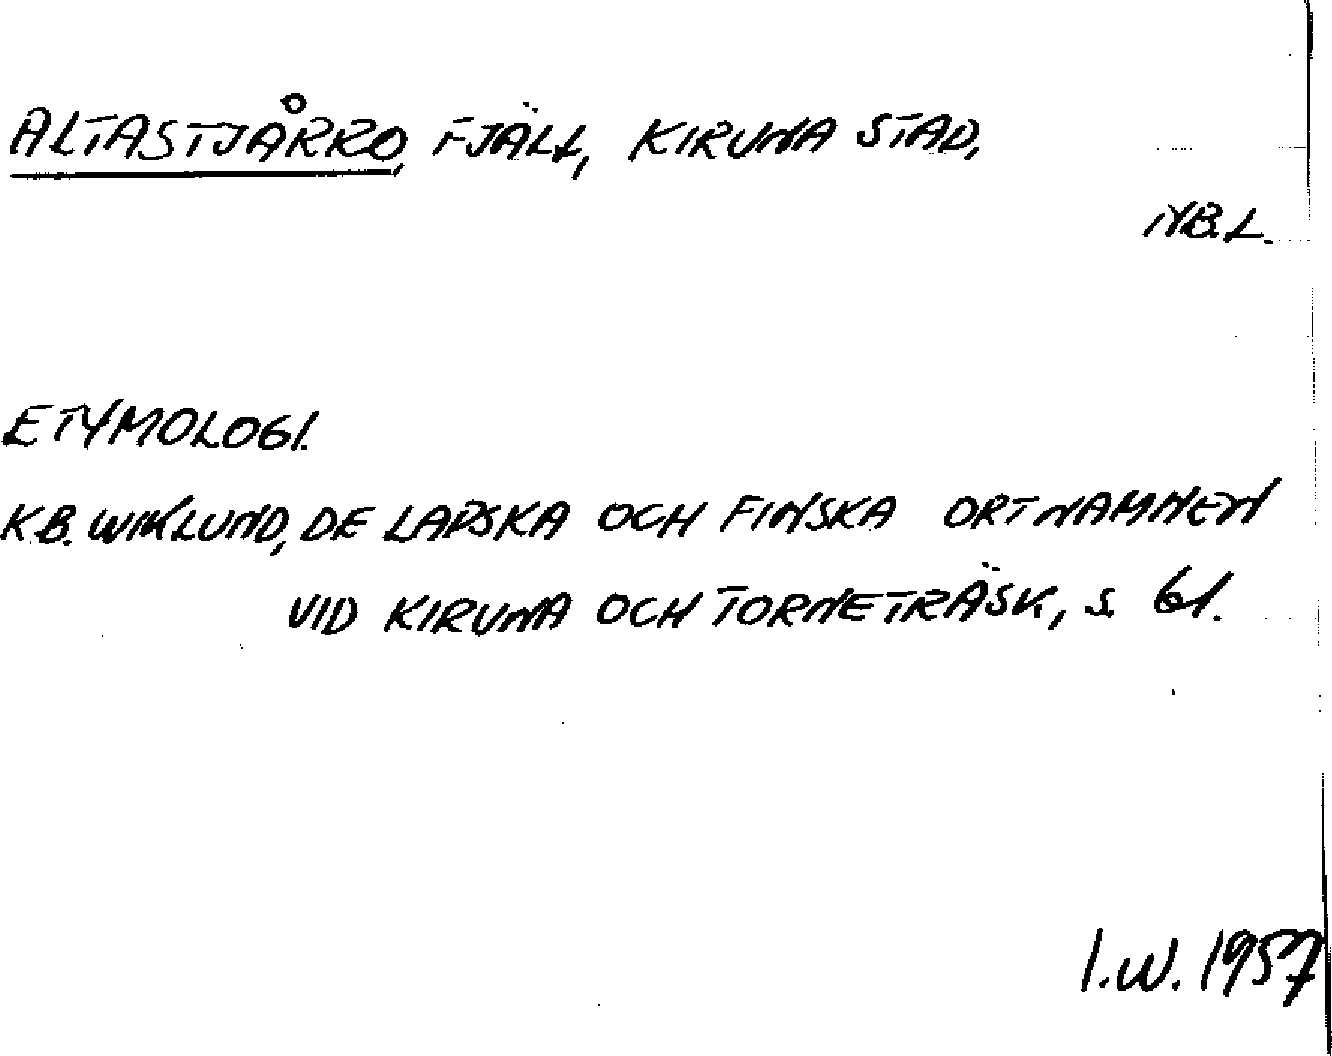 ALTASTJÅRRO, FJÄLL, KIRUNA STAD,
NB.L.
ETYMOLOGI.
K.B. WIKLUND, DE LAPSKA OCH FINSKA ORTNAMNEN
VID KIRUNA OCH TORNETRÄSK, S. 61.
I.W. 1957